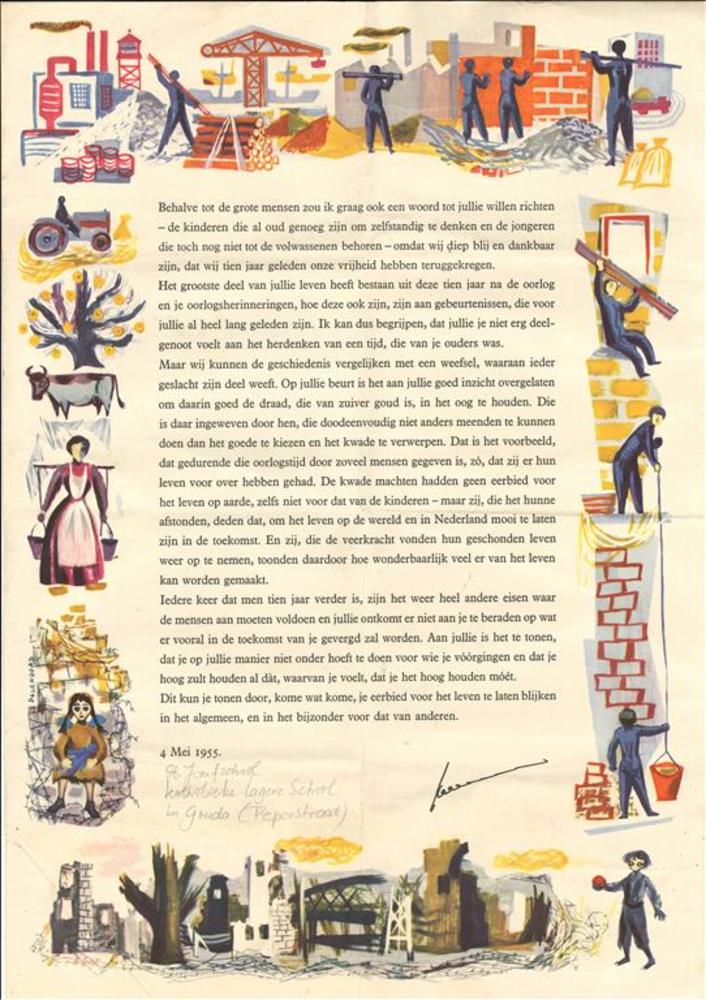 Behalve tot de grote mensen zou ik graag ook een woord tot jullie willen richten
– de kinderen die al oud genoeg zijn om zelfstandig te denken en de jongeren
die toch nog niet tot de volwassenen behoren – omdat wij diep blij en dankbaar
zijn, dat wij tien jaar geleden onze vrijheid hebben teruggekregen.
Het grootste deel van jullie leven heeft bestaan uit deze tien jaar na de oorlog
en je oorlogsherinneringen, hoe deze ook zijn, zijn aan gebeurtenissen, die voor
jullie al heel lang geleden zijn. Ik kan dus begrijpen, dat jullie je niet erg deel-
genoot voelt aan het herdenken van een tijd, die van je ouders was.
Maar wij kunnen de geschiedenis vergelijken met een weefsel, waaraan ieder
geslacht zijn deel weeft. Op jullie beurt is het aan jullie goed inzicht overgelaten
om daarin goed de draad, die van zuiver goud is, in het oog te houden. Die
is daar ingeweven door hen, die doodeenvoudig niet anders meenden te kunnen
doen dan het goede te kiezen en het kwade te verwerpen. Dat is het voorbeeld,
dat gedurende die oorlogstijd door zoveel mensen gegeven is, zó, dat zij er hun
leven voor over hebben gehad. De kwade machten hadden geen eerbied voor
het leven op aarde, zelfs niet voor dat van de kinderen – maar zij, die het hunne
afstonden, deden dat, om het leven op de wereld en in Nederland mooi te laten
zijn in de toekomst. En zij, die de veerkracht vonden hun geschonden leven
weer op te nemen, toonden daardoor hoe wonderbaarlijk veel er van het leven
kan worden gemaakt.
Iedere keer dat men tien jaar verder is, zijn het weer heel andere eisen waar
de mensen aan moeten voldoen en jullie ontkomt er niet aan je te beraden op wat
er vooral in de toekomst van je gevergd zal worden. Aan jullie is het te tonen,
dat je op jullie manier niet onder hoeft te doen voor wie je vóórgingen en dat je
hoog zult houden al dàt, waarvan je voelt, dat je het hoog houden móét.
Dit kun je tonen door, kome wat kome, je eerbied voor het leven te laten blijken
in het algemeen, en in het bijzonder voor dat van anderen.
4 Mei 1955.
St. Jozefschool
katholieke Lagere School
in Gouda (Peperstraat)